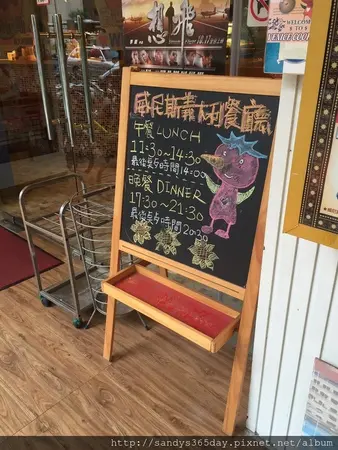 想飛
WELCOME
VENICE CUISINE
威尼斯義大利餐廳
午餐 LUNCH
11:30~14:30
最後點餐時間14:00
晚餐 DINNER
17:30~21:30
最後點餐時間20:30
http://sandys365day.pixnet.net/album